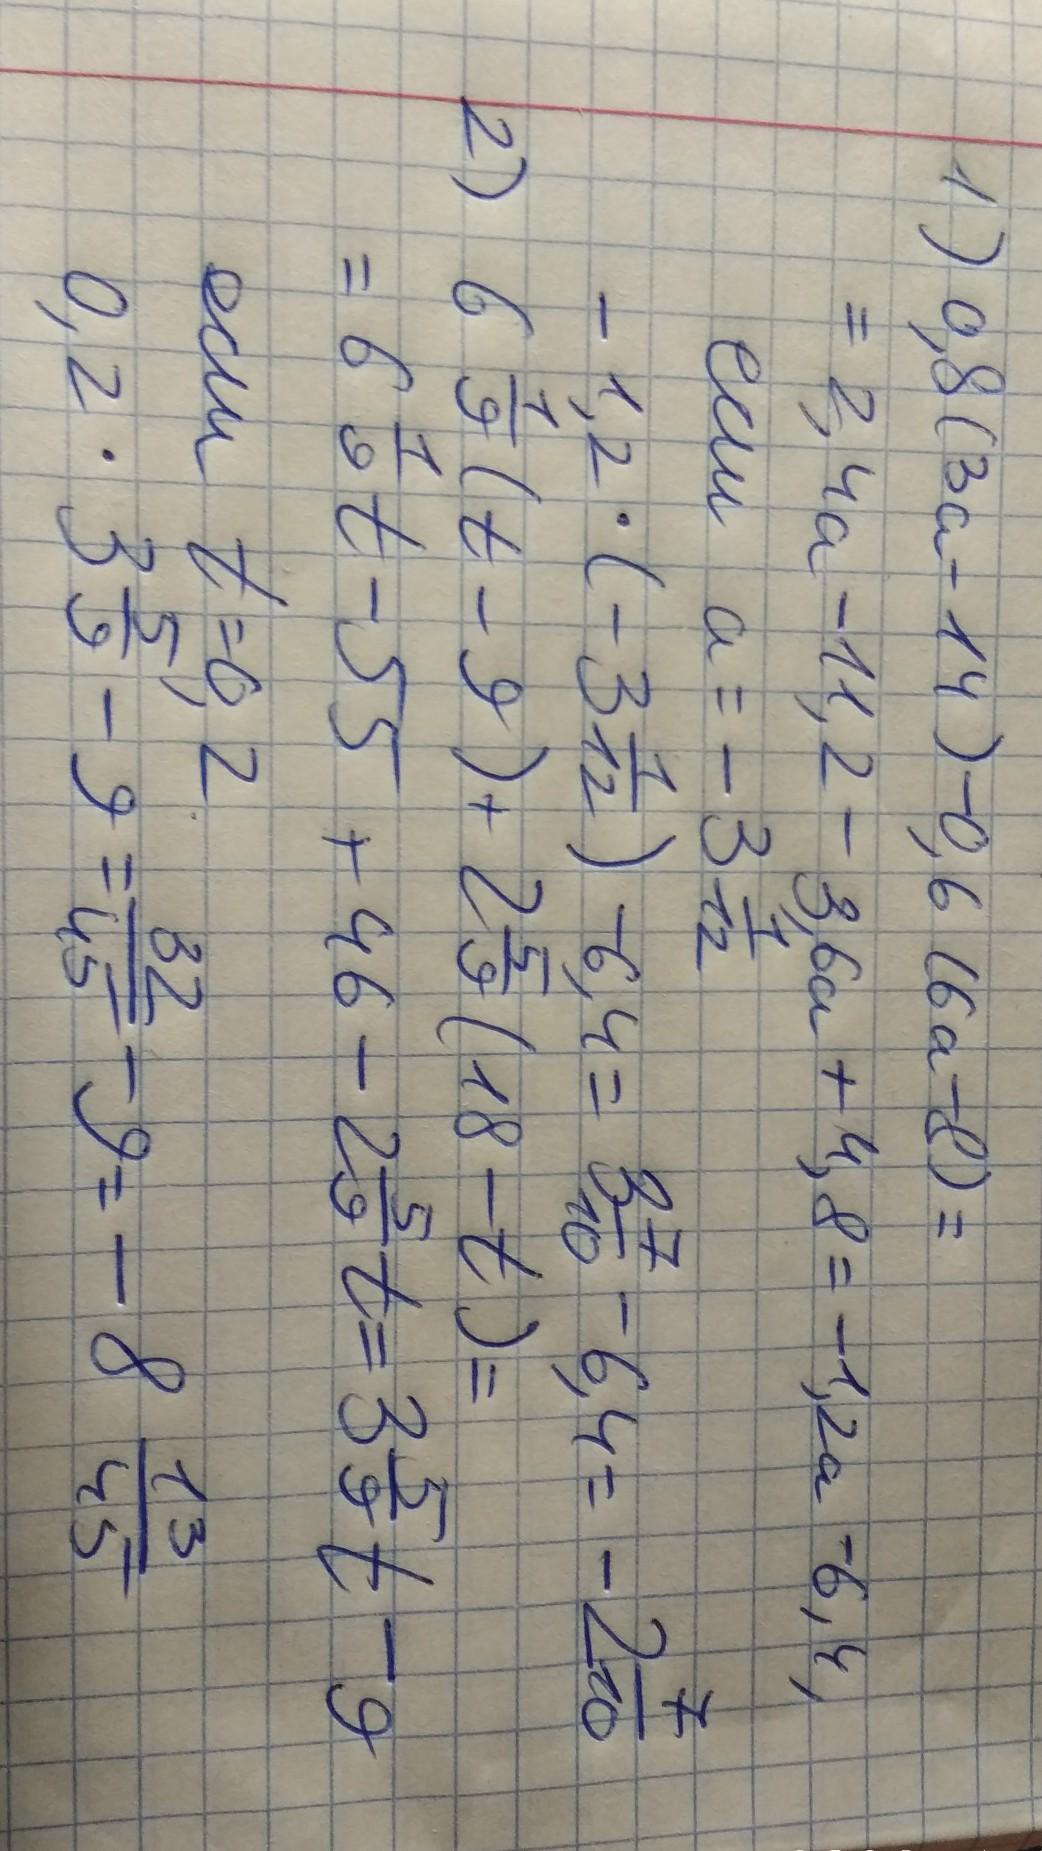 1) 0,8(3a-14)-0,6(6a-8)=
= 2,4a-11,2-3,6a+4,8=-1,2a-6,4,
если a=-3 1/12
-1,2·(-3 1/12)-6,4= 3 7/10-6,4=-2 7/10
2) 6 1/9(t-9)+2 5/9(18-t)=
=6 1/9t-55+46-2 5/9t=3 5/9t-9
если t=0,2
0,2·3 5/9-9=32/45-9=-8 13/45